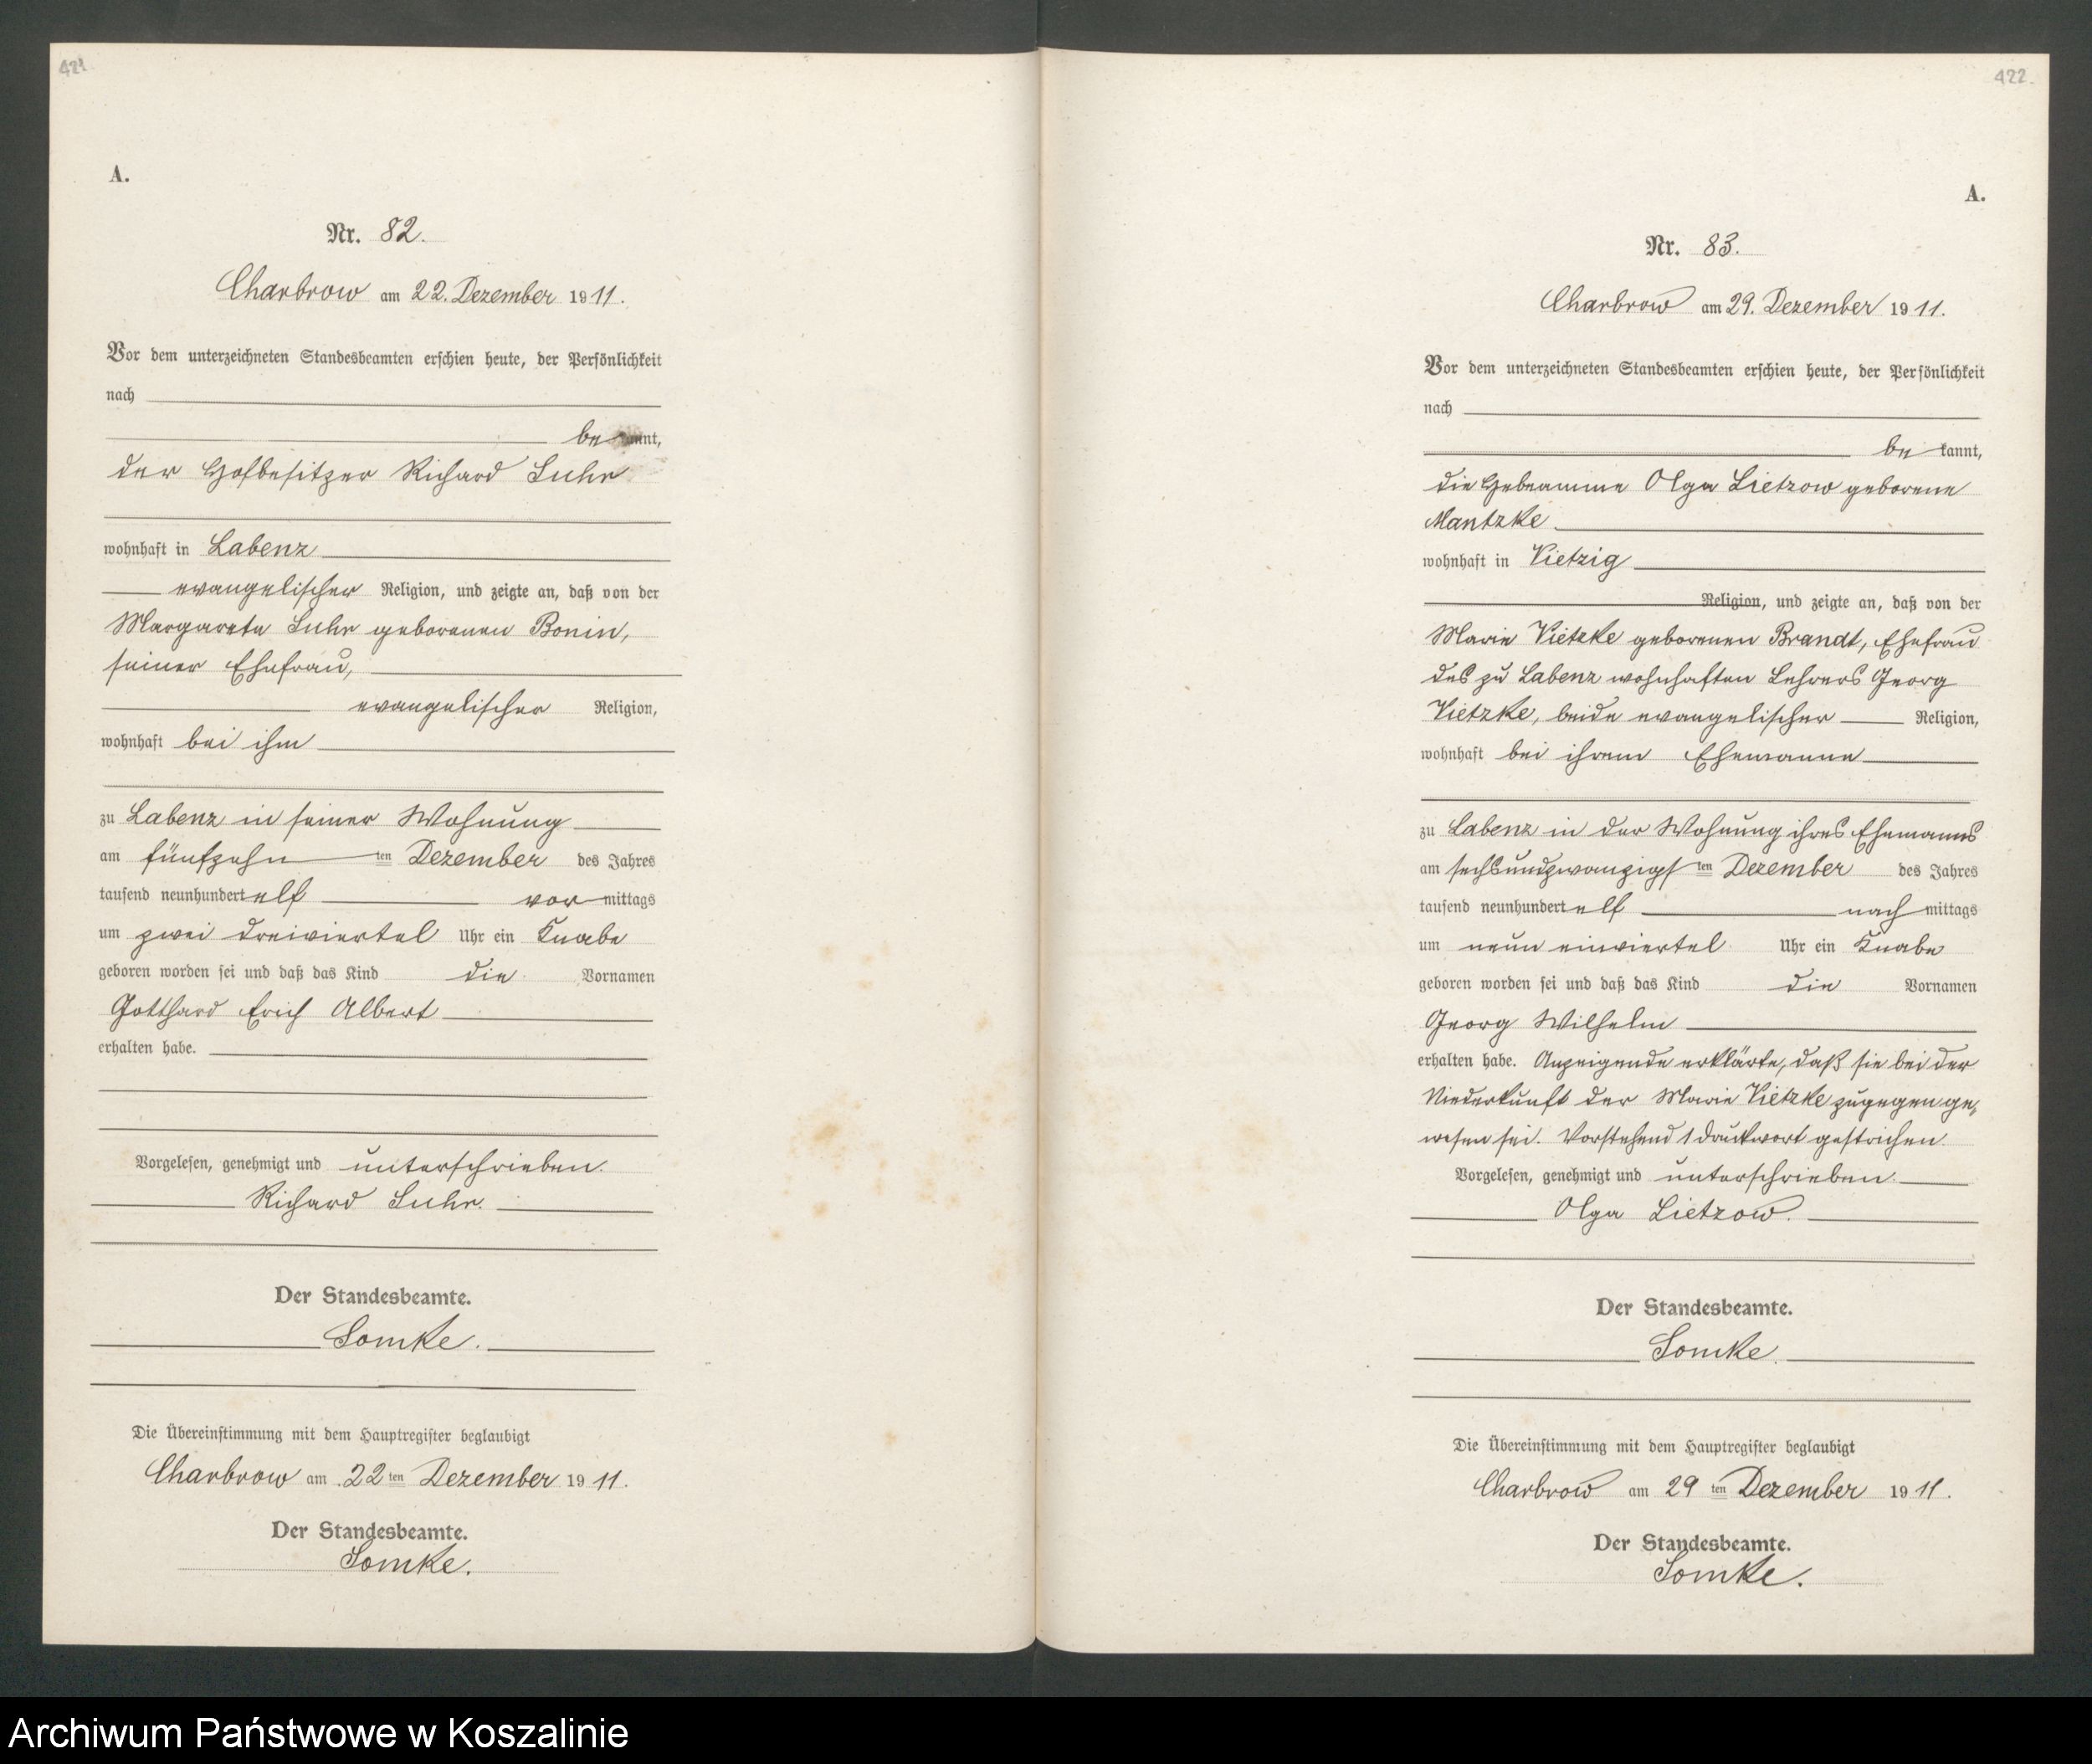 421.
A.
Nr. 82.
Charbrow am 22. Dezember 1911.
Vor dem unterzeichneten Standesbeamten erschien heute, der Persönlichkeit
nach
bekannt,
der Hofbesitzer Richard Suhr
wohnhaft in Labenz
evangelischer Religion, und zeigte an, daß von der
Margarete Suhr geborenen Bonin,
seiner Ehefrau,
evangelischer Religion,
wohnhaft bei ihm
zu Labenz in seiner Wohnung
am fünfzehnten Dezember des Jahres
tausend neunhundert elf vormittags
um zwei dreiviertel Uhr ein Knabe
geboren worden sei und daß das Kind die Vornamen
Gotthard Erich Albert
erhalten habe.
Vorgelesen, genehmigt und unterschrieben.
Richard Suhr.
Der Standesbeamte.
Somke.
Die Übereinstimmung mit dem Hauptregister beglaubigt
Charbrow am 22ten Dezember 1911.
Der Standesbeamte.
Somke.
422.
A.
Nr. 83.
Charbrow am 29. Dezember 1911.
Vor dem unterzeichneten Standesbeamten erschien heute, der Persönlichkeit
nach
bekannt,
die Hebeamme Olga Lietzow geborene
Mantzke
wohnhaft in Vietzig
Religion, und zeigte an, daß von der
Marie Vietzke geborenen Brandt, Ehefrau
des zu Labenz wohnhaften Lehrers Georg
Vietzke, beide evangelischer Religion,
wohnhaft bei ihrem Ehemanne
zu Labenz in der Wohnung ihres Ehemanns
am sechsundzwanzigsten Dezember des Jahres
tausend neunhundert elf nachmittags
um neun einviertel Uhr ein Knabe
geboren worden sei und daß das Kind die Vornamen
Georg Wilhelm
erhalten habe. Anzeigende erklärte, daß sie bei der
Niederkunft der Marie Vietzke zugegen ge-
wesen sei. Vorstehend 1 Druckwort gestrichen.
Vorgelesen, genehmigt und unterschrieben.
Olga Lietzow.
Der Standesbeamte.
Somke.
Die Übereinstimmung mit dem Hauptregister beglaubigt
Charbrow am 29ten Dezember 1911.
Der Standesbeamte.
Somke.
Archiwum Państwowe w Koszalinie